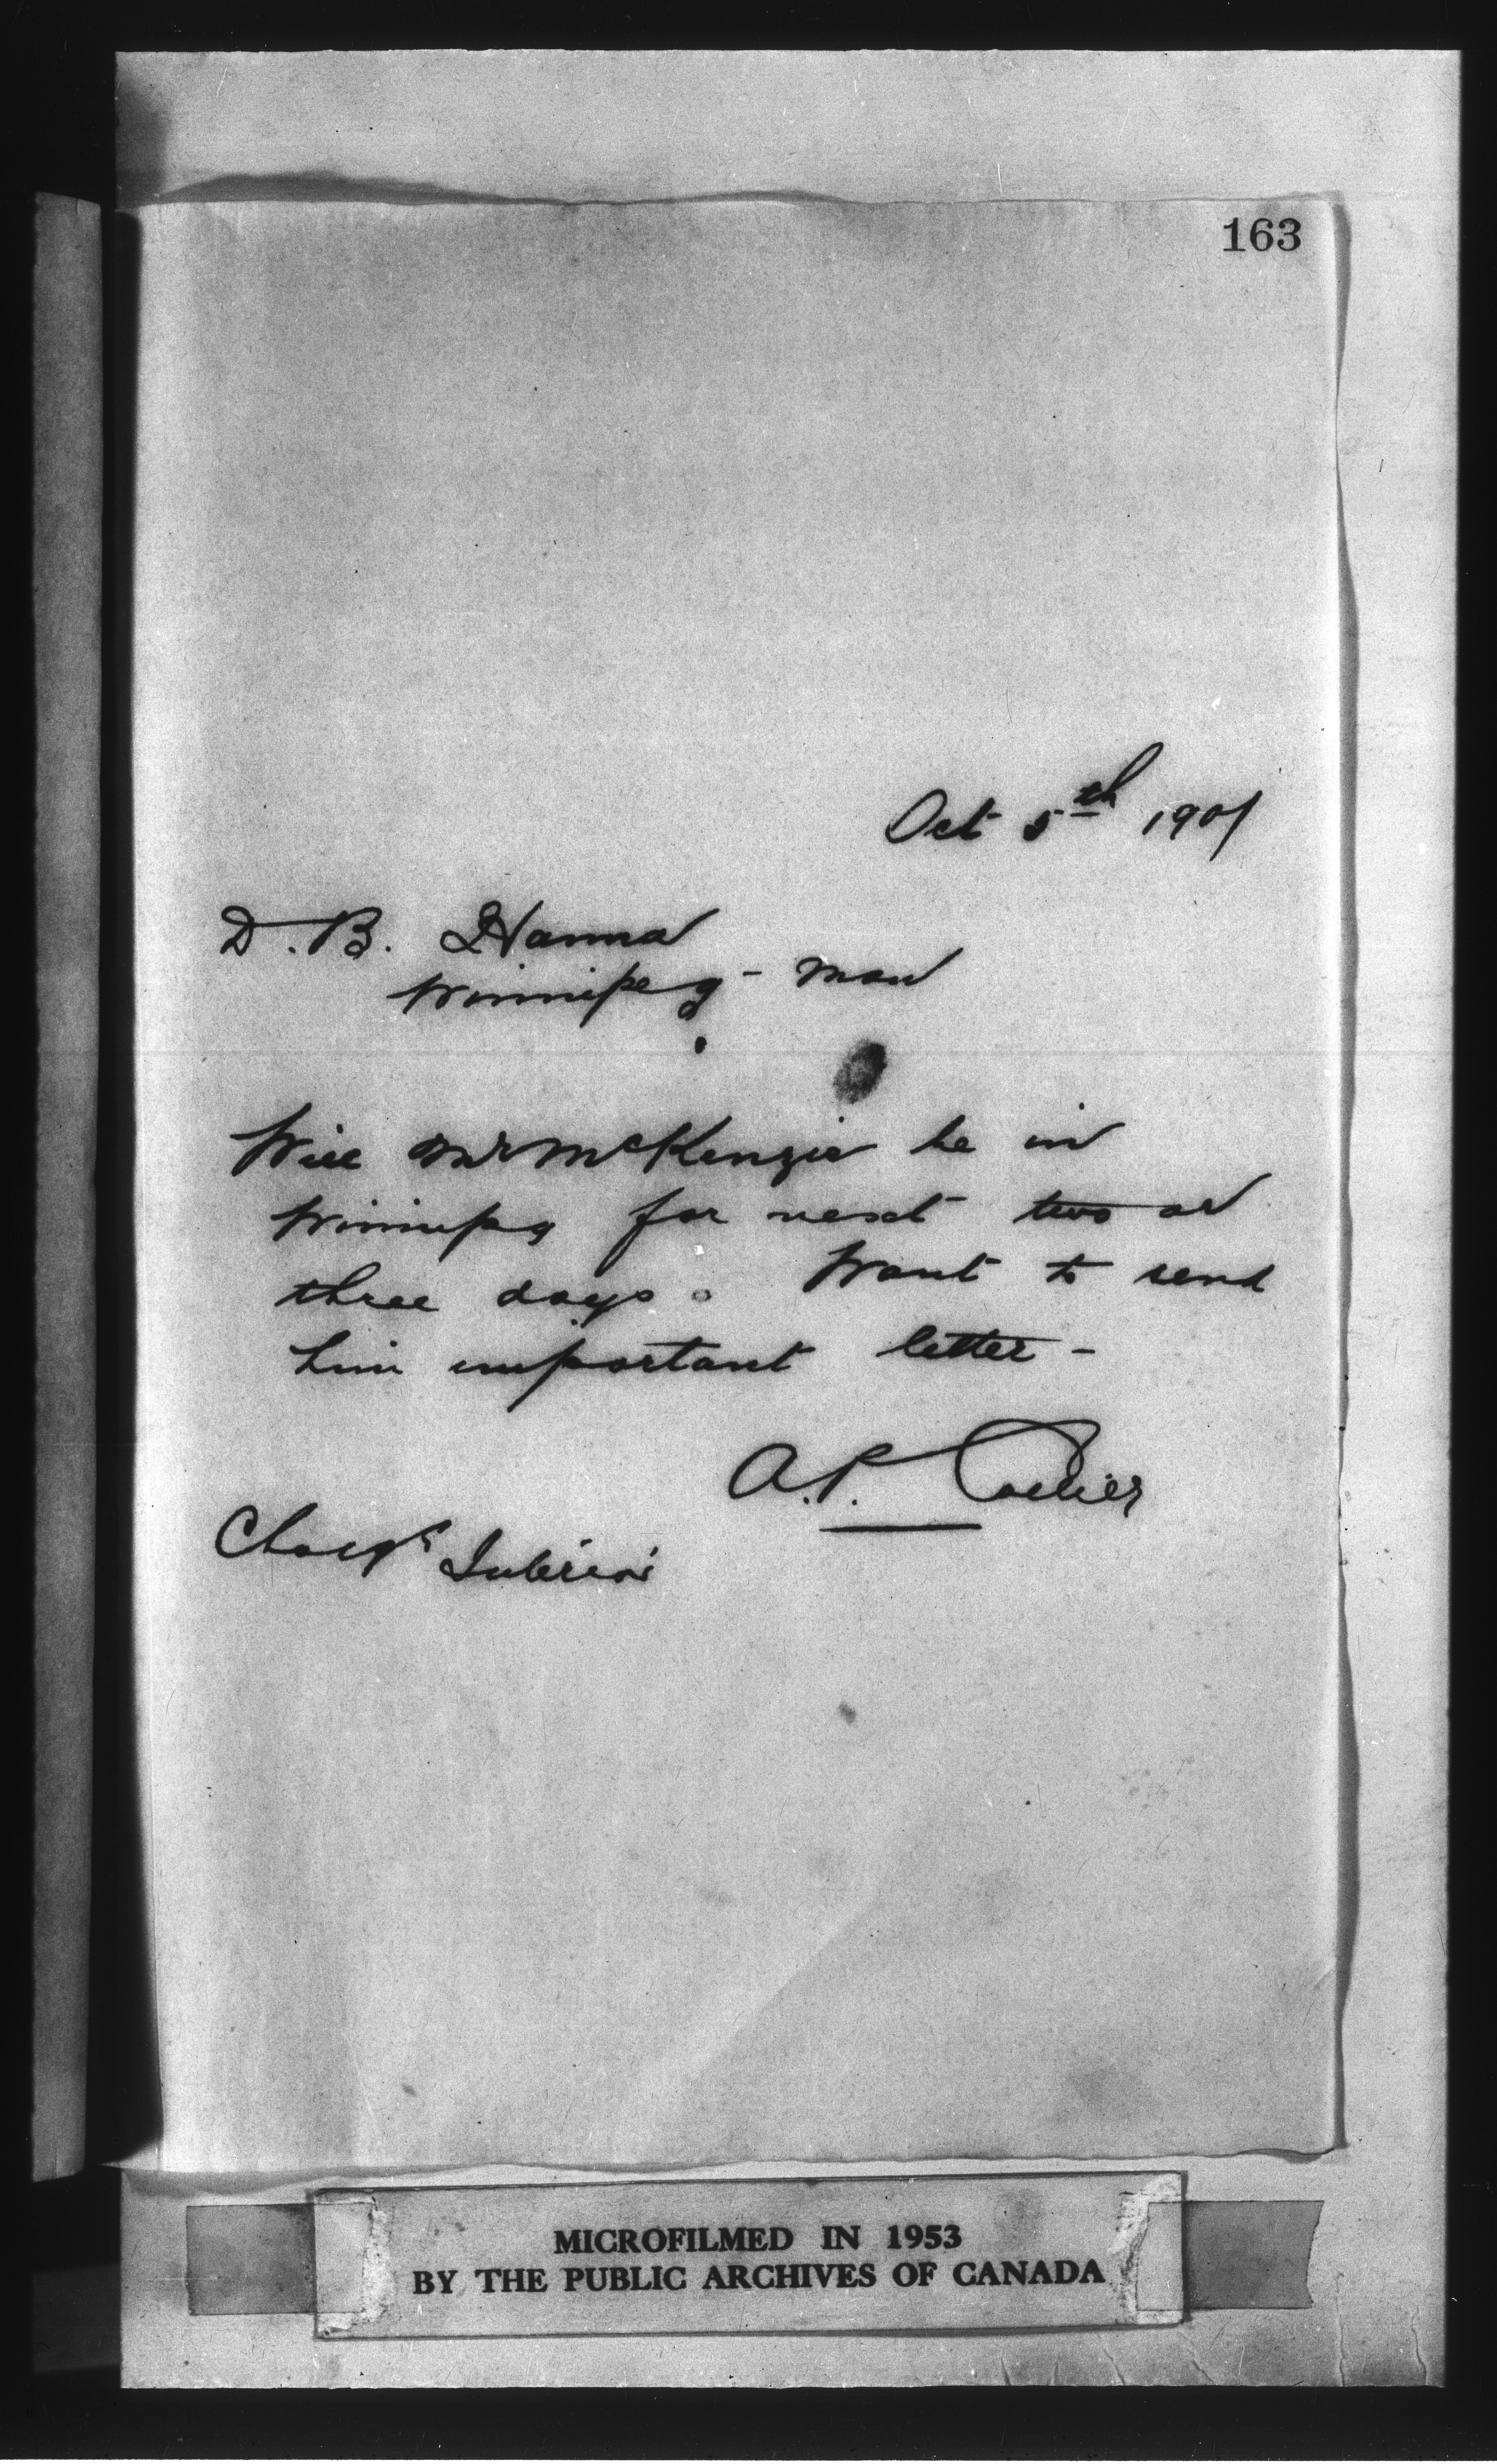 163
Oct 5th 1901
D. B. Hanna
Winnipeg - Man
Will Mr McKenzie be in
Winnipeg for next two or
three days. Want to send
him important letter -
A.P. Collier
Charge Interior
MICROFILMED IN 1953
BY THE PUBLIC ARCHIVES OF CANADA